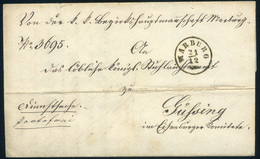 Von der k. k. Bezirkshauptmannschaft Marburg
Nr. 3695.
An
MARBURG
21
12
das löbliche königl. Stuhlrichteramt
zu
Dienstsache
portofrei
Güssing
im Eisenburger Comitate.